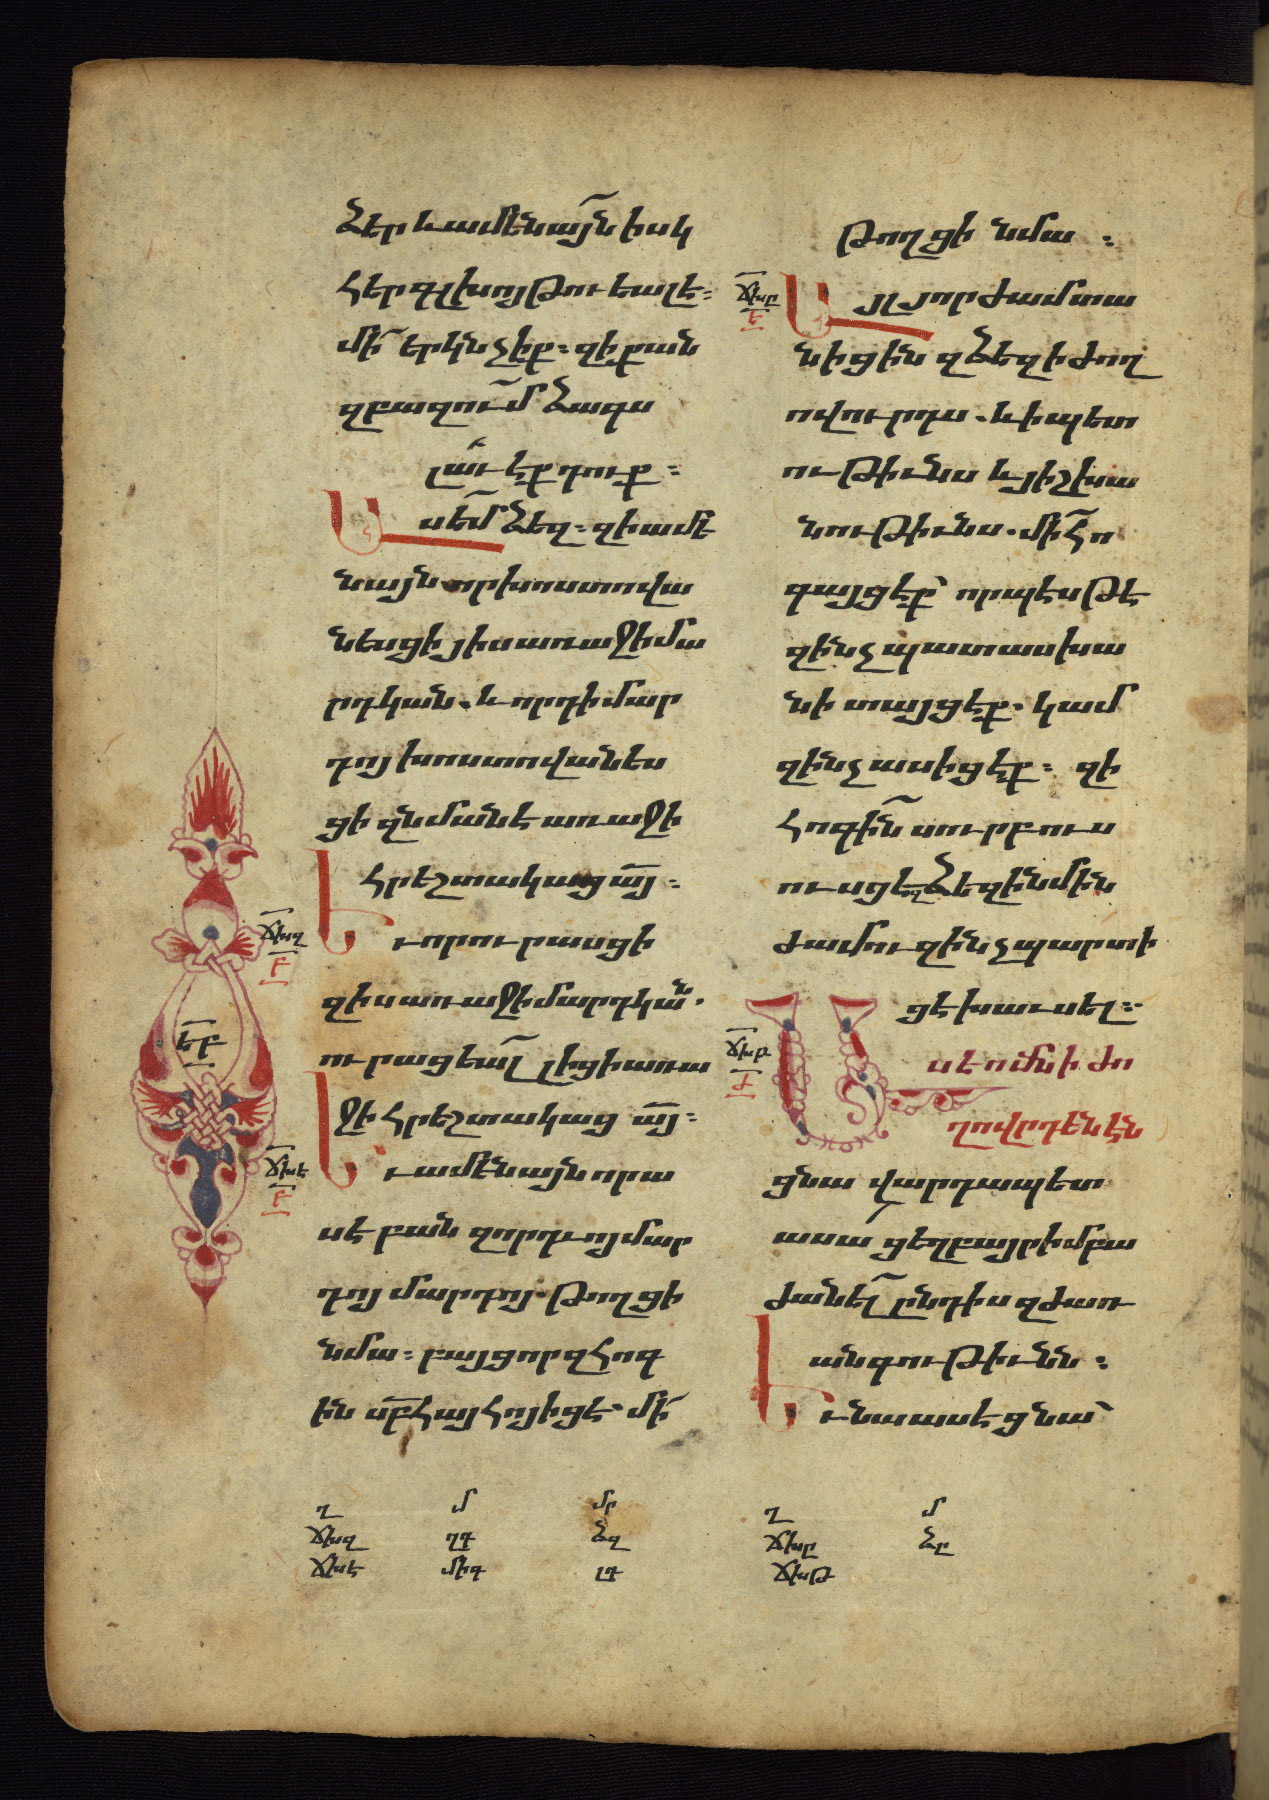 ձեր և ամենայն իսկ
հեր գլխոյ թուեալ է։
մի՛ երկնչիք։ զի քան
զբազում ձագս
լաւ էք դուք։
Ասեմ ձեզ։ զի ամե
նայն որ խոստովա
նեսցի յիս առաջի մա
րդկան. և որդի մար
դոյ խոստովանես
ցի զնմանէ առաջի
հրեշտակաց այ։
Եւ որ ուրասցի
զիս առաջի մարդկան.
ուրացեալ լիցի առա
ջի հրեշտակաց այ։
Եւ ամենայն որ ա
սէ բան զորդւոյ մար
դոյ մարդոյ. թողցի
նմա։ բայց որ զհոգ
ին սբ հայհոյիցէ. մի՛
ճխզ
բ
եբ
ճխէ
բ
թողցի նմա։
ճխը
է
Այլ յորժամ տա
նիցին զձեզ ի ժող
ովուրդս. և ի պետ
ութիւնս և յիշխա
նութիւնս. մի հո
գայցէք՝ որպէս թէ
զինչ պատասխա
նի տայցէք. կամ
զինչ ասիցէք։ զի
հոգին սուրբ ուս
ուսցէ ձեզ ինմին
ժամու զինչ պարտի
ցէ խաւսել։
ճխթ
ժ
Ասէ ոմն ի ժո
ղովրդենէն
ցնա վարդապետ
ասա ցեղբայր իմ բա
ժանել ընդ իս զժառ
անգութիւնն։
Եւ նա ասէ ցնա՝
ղ մ մր
ճխզ ղգ ձզ
ճխէ մխգ լգ
ղ մ
ճխը ձը
ճխթ